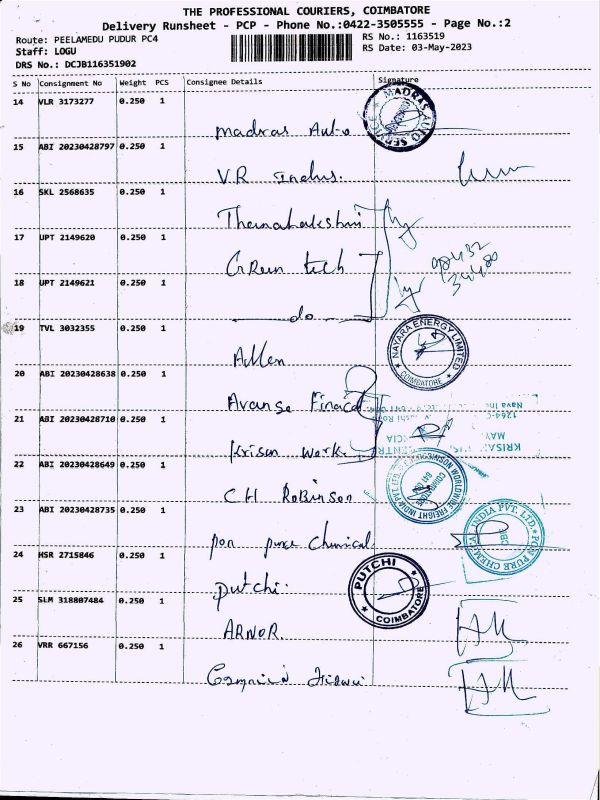 THE PROFESSIONAL COURIERS, COIMBATORE
Delivery Runsheet - PCP - Phone No.:0422-3505555 - Page No.:2
Route: PEELAMEDU PUDUR PC4
RS No.: 1163519
Staff: LOGU
RS Date: 03-May-2023
DRS No.: DCJB116351902
S No Consignment No Weight PCS Consignee Details Signature
14 VLR 3173277 0.250 1
Madras Auto
MADRAS AUTO SERVICE
15 ABI 20230428797 0.250 1
V.R Indus.
16 SKL 2568635 0.250 1
17 UPT 2149620 0.250 1
Green tech
18 UPT 2149621 0.250 1
do
19 TVL 3032355 0.250 1
Allen
NAYARA ENERGY LIMITED
COIMBATORE
20 ABI 20230428638 0.250 1
21 ABI 20230428710 0.250 1
Krisan Work
22 ABI 20230428649 0.250 1
CH Robinson
23 ABI 20230428735 0.250 1
pon pure Chemical
PON PURE CHEMICAL INDIA PVT. LTD.
CBE
24 HSR 2715846 0.250 1
putchi.
PUTCHI
COIMBATORE
25 SLM 318807484 0.250 1
ARNOR.
26 VRR 667156 0.250 1